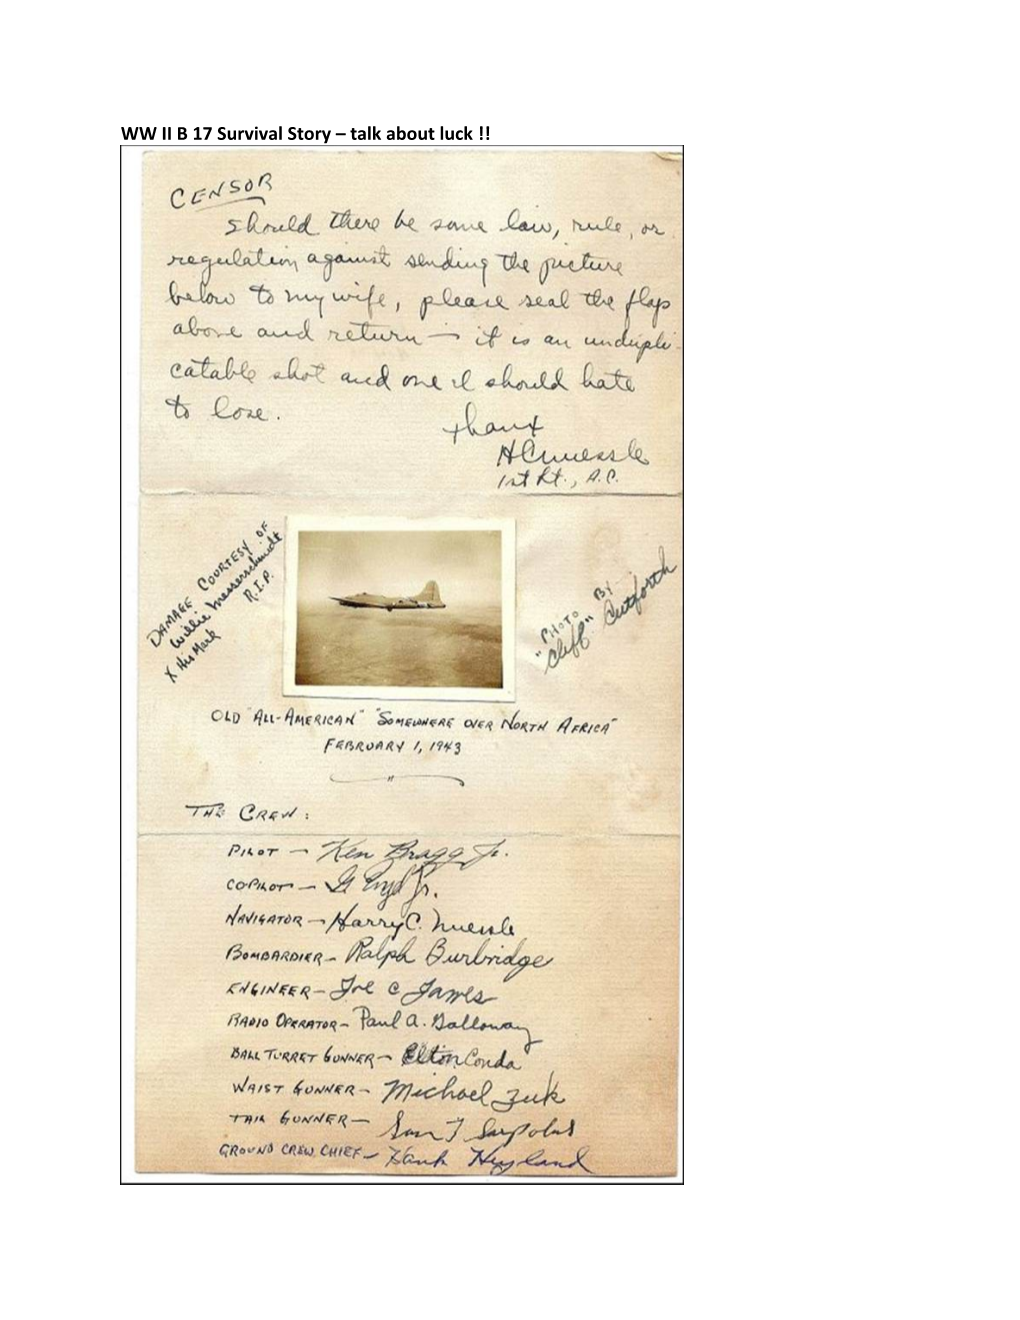 WW II B 17 Survival Story – talk about luck !!
CENSOR
Should there be some law, rule, or
regulation against sending the picture
below to my wife, please seal the flap
above and return — it is an undupli-
catable shot and one I should hate
to lose.
thanx
HCNuessle
1st Lt., A.C.
DAMAGE COURTESY OF
Willie Messerschmidt
R.I.P.
X His Mark
"PHOTO BY
"Cliff" Cutforth
OLD "ALL-AMERICAN" "SOMEWHERE OVER NORTH AFRICA"
FEBRUARY 1, 1943
THE CREW:
PILOT — Ken Bragg Jr.
COPILOT — Jr.
NAVIGATOR — Harry C. Nuessle
BOMBARDIER — Ralph Burbridge
ENGINEER — Joe C James
RADIO OPERATOR — Paul A. Galloway
BALL TURRET GUNNER — Elton Conda
WAIST GUNNER — Michael Zuk
TAIL GUNNER — Sam T Sarpolus
GROUND CREW CHIEF — Hank Hyland